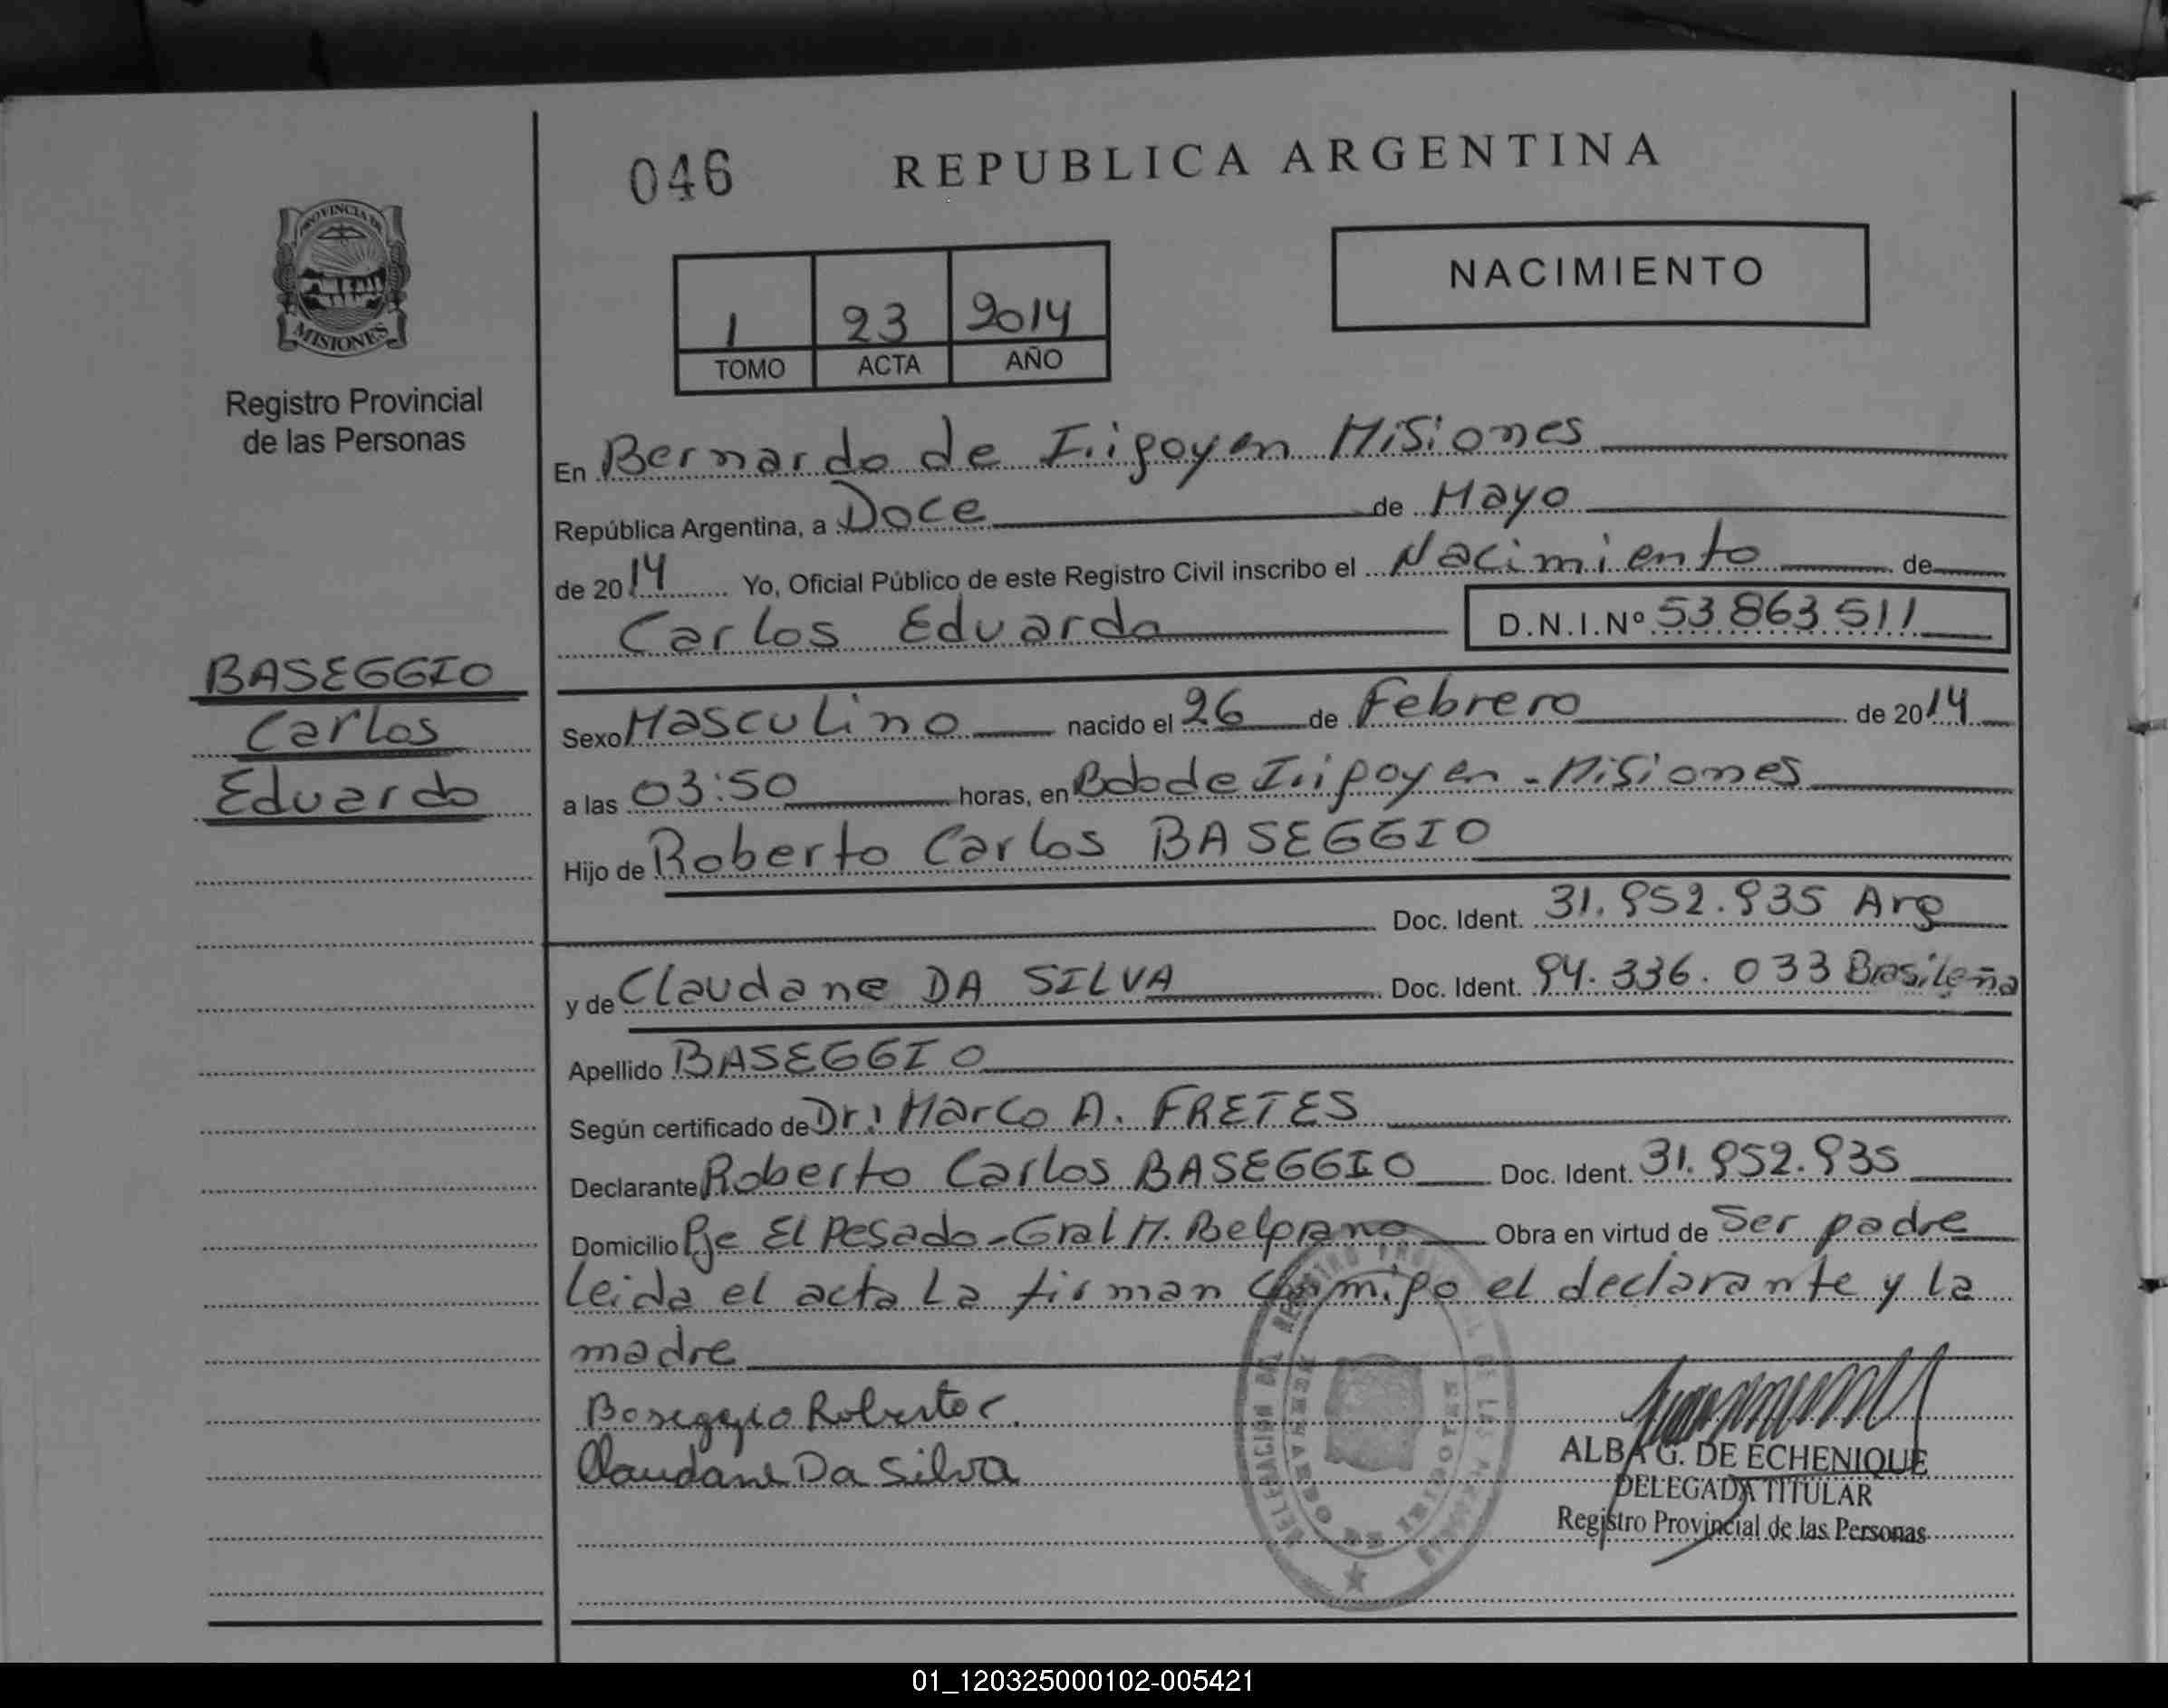 046
REPUBLICA ARGENTINA
PROVINCIA DE
MISIONES
Registro Provincial
de las Personas
NACIMIENTO
1 23 2014
TOMO ACTA AÑO
En Bernardo de Irigoyen Misiones
República Argentina, a Doce de Mayo
de 2014 Yo, Oficial Público de este Registro Civil inscribo el Nacimiento de
Carlos Eduardo D.N.I.Nº 53 863 511
BASEGGIO
Carlos
Eduardo
Sexo Masculino nacido el 26 de Febrero de 2014
a las 03:50 horas, en Bdo de Irigoyen - Misiones
Hijo de Roberto Carlos BASEGGIO
Doc. Ident. 31.952.935 Arg
y de Claudane DA SILVA Doc. Ident. 94.336.033 Brasileña
Apellido BASEGGIO
Según certificado de Dr: Marco A. FRETES
Declarante Roberto Carlos BASEGGIO Doc. Ident. 31.952.935
Domicilio Pje El Pesado - Gral M. Belgrano Obra en virtud de Ser padre
Leida el acta La firman conmigo el declarante y la
madre
Baseggio Roberto C.
Claudane Da Silva
ALBA G. DE ECHENIQUE
DELEGADA TITULAR
Registro Provincial de las Personas
01_120325000102-005421